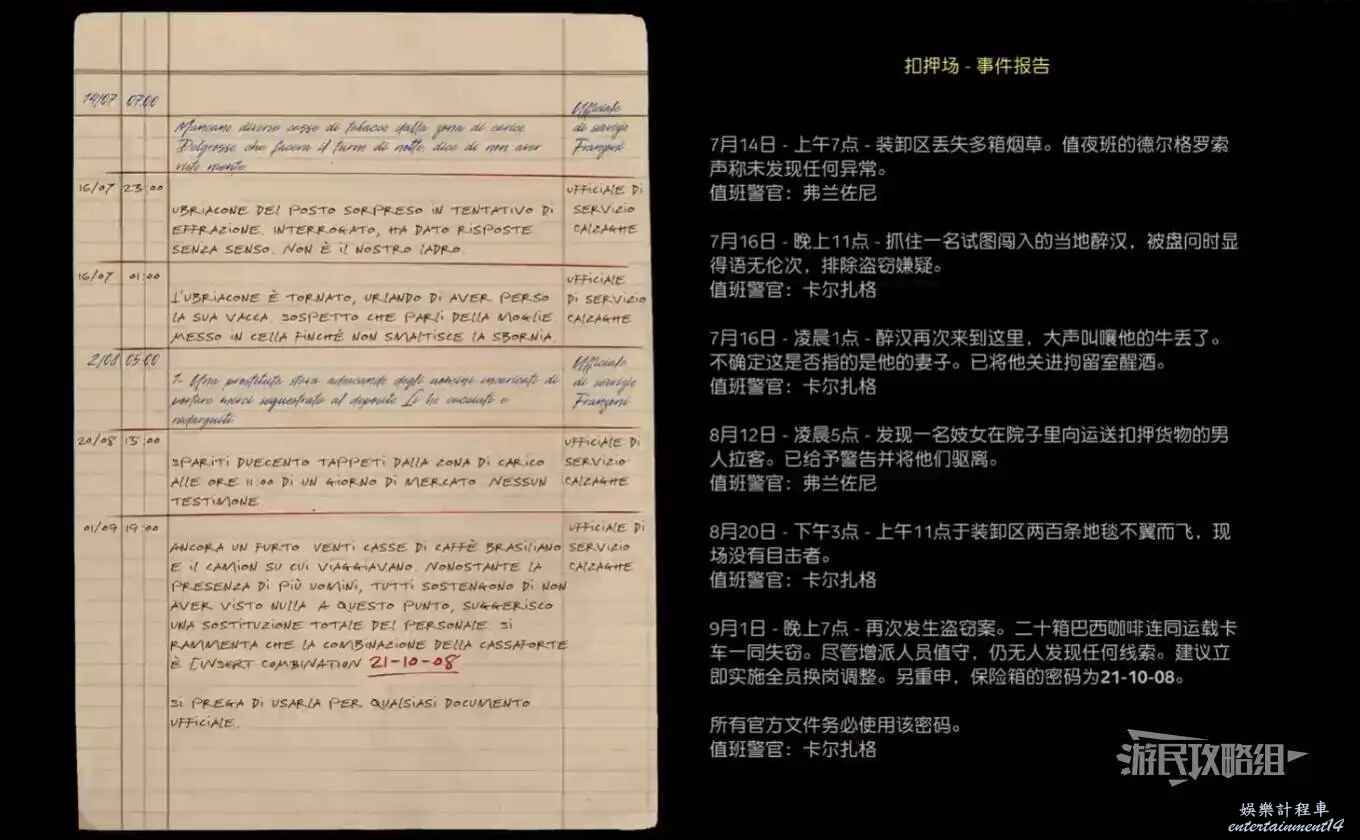 14/07 07:00
Mancano diverse casse di tabacco dalla zona di carico
Delgrosso che faceva il turno di notte, dice di non aver
visto niente
Ufficiale
di servizio
Franzoni
16/07 23:00
UBRIACONE DEL POSTO SORPRESO IN TENTATIVO DI
EFFRAZIONE. INTERROGATO, HA DATO RISPOSTE
SENZA SENSO. NON È IL NOSTRO LADRO.
UFFICIALE DI
SERVIZIO
CALZAGHE
16/07 01:00
L'UBRIACONE È TORNATO, URLANDO DI AVER PERSO
LA SUA VACCA. SOSPETTO CHE PARLI DELLA MOGLIE
MESSO IN CELLA FINCHÉ NON SMALTISCE LA SBORNIA.
UFFICIALE
DI SERVIZIO
CALZAGHE
2/08 05:00
1. Una prostituta stava adescando degli uomini incaricati di
portare merci sequestrate al deposito Li ho cacciati e
redarguiti
Ufficiale
di servizio
Franzoni
20/08 15:00
SPARITI DUECENTO TAPPETI DALLA ZONA DI CARICO
ALLE ORE 11:00 DI UN GIORNO DI MERCATO NESSUN
TESTIMONE
UFFICIALE DI
SERVIZIO
CALZAGHE
01/09 19:00
ANCORA UN FURTO VENTI CASSE DI CAFFÈ BRASILIANO
E IL CAMION SU CUI VIAGGIAVANO. NONOSTANTE LA
PRESENZA DI PIÙ UOMINI, TUTTI SOSTENGONO DI NON
AVER VISTO NULLA A QUESTO PUNTO, SUGGERISCO
UNA SOSTITUZIONE TOTALE DEL PERSONALE. SI
RAMMENTA CHE LA COMBINAZIONE DELLA CASSAFORTE
È [INSERT COMBINATION 21-10-08
SI PREGA DI USARLA PER QUALSIASI DOCUMENTO
UFFICIALE.
UFFICIALE DI
SERVIZIO
CALZAGHE
扣押场 - 事件报告
7月14日 - 上午7点 - 装卸区丢失多箱烟草。值夜班的德尔格罗索
声称未发现任何异常。
值班警官：弗兰佐尼
7月16日 - 晚上11点 - 抓住一名试图闯入的当地醉汉，被盘问时显
得语无伦次，排除盗窃嫌疑。
值班警官：卡尔扎格
7月16日 - 凌晨1点 - 醉汉再次来到这里，大声叫嚷他的牛丢了。
不确定这是否指的是他的妻子。已将他关进拘留室醒酒。
值班警官：卡尔扎格
8月12日 - 凌晨5点 - 发现一名妓女在院子里向运送扣押货物的男
人拉客。已给予警告并将他们驱离。
值班警官：弗兰佐尼
8月20日 - 下午3点 - 上午11点于装卸区两百条地毯不翼而飞，现
场没有目击者。
值班警官：卡尔扎格
9月1日 - 晚上7点 - 再次发生盗窃案。二十箱巴西咖啡连同运载卡
车一同失窃。尽管增派人员值守，仍无人发现任何线索。建议立
即实施全员换岗调整。另重申，保险箱的密码为21-10-08。
所有官方文件务必使用该密码。
值班警官：卡尔扎格
游民攻略组
娛樂計程車
entertainment14